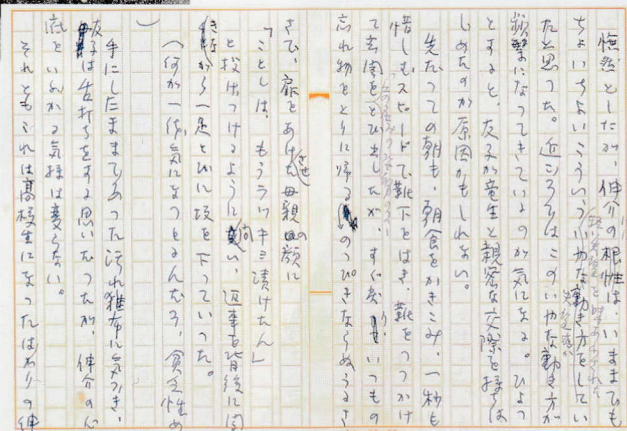 憮然としたが、伸介の根性は、いままでも
ちょいちょいこういういやな動き方をしてい
たと思った。近ごろはこのいやな動き方が
頻繁になってきているのが気になる。ひょっ
とすると、友子が竜生と親密な交際を持ちは
じめたのが原因かもしれない。
先だっての朝も、朝食をかきこみ、一秒も
惜しむスピードで靴下をはき、靴をつっかけ
て玄関をとび出したが、すぐ いつもの
忘れ物をとりに帰る のっぴきならぬうるさ
さで、扉をあけさせた母親の顔に
「ことしは、もうラッキョ漬けたん」
と投げつけるように い、返事を背後に聞
き から一足とびに坂を下っていった。
（何が一体気になっとるんだろ、貧乏性め
）
手にしたままであった汚れ雑布に気づき、
友子は舌打ちをする思いだったが、伸介の心
底をいぶかる気持は変らない。
それともこれは高校生になったばかりの伸